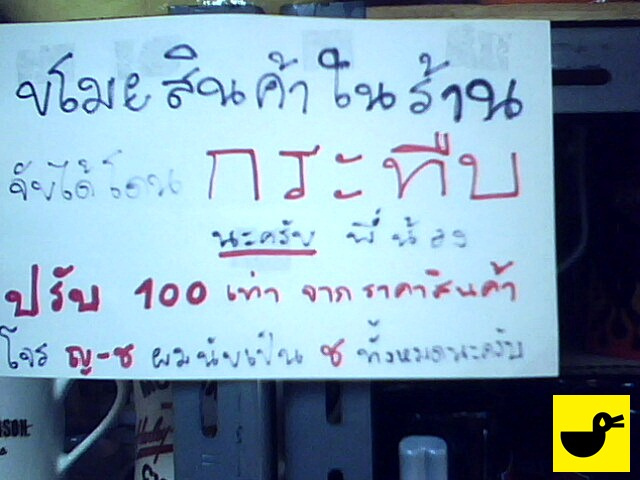 ขโมยสินค้าในร้าน
จับได้โดน กระทืบ
นะครับ พี่น้อง
ปรับ 100 เท่า จากราคาสินค้า
โจร ญ-ช ผมนับเป็น ช ทั้งหมดนะครับ